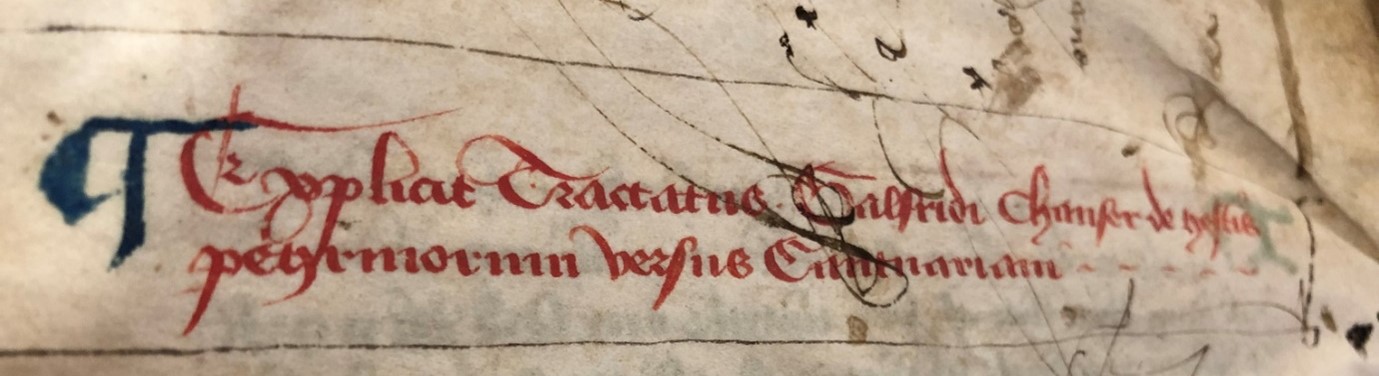 ¶ Explicit Tractatus Galfridi Chauser de gestis
peregrinorum versus Cantuariam